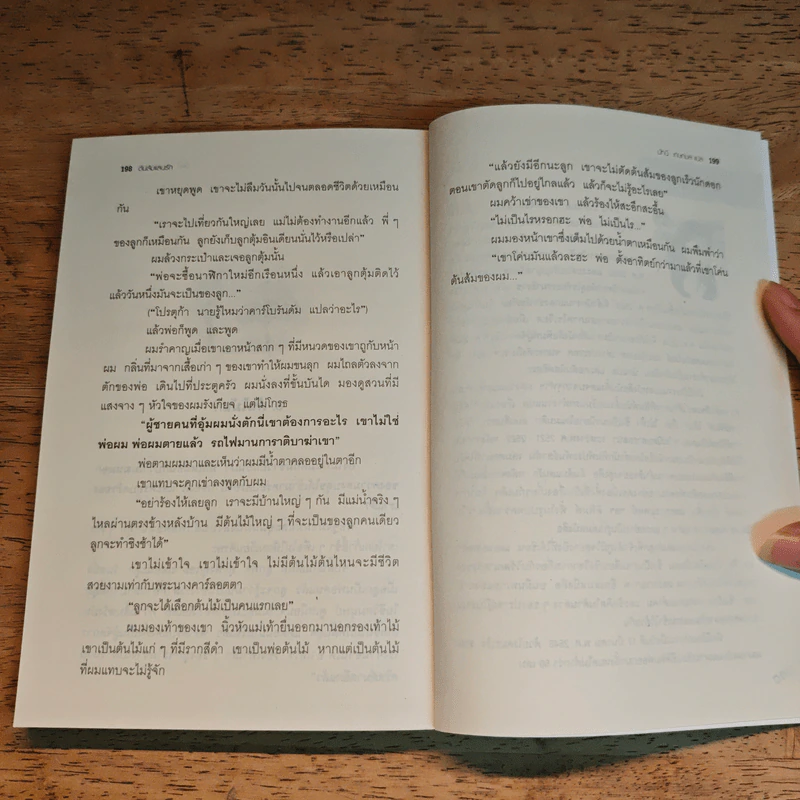 198 ต้นส้มแสนรัก
เขาหยุดพูด เขาจะไม่ลืมวันนั้นไปจนตลอดชีวิตด้วยเหมือน
กัน
“เราจะไปเที่ยวกันใหญ่เลย แม่ไม่ต้องทำงานอีกแล้ว พี่ ๆ
ของลูกก็เหมือนกัน ลูกยังเก็บลูกตุ้มอินเดียนนั่นไว้หรือเปล่า”
ผมล้วงกระเป๋าและเจอลูกตุ้มนั่น
“พ่อจะซื้อนาฬิกาใหม่อีกเรือนหนึ่ง แล้วเอาลูกตุ้มติดไว้
แล้ววันหนึ่งมันจะเป็นของลูก...”
(“โปรตุก้า นายรู้ไหมว่าคาร์โบรันดัม แปลว่าอะไร”)
แล้วพ่อก็พูด และพูด
ผมรำคาญเมื่อเขาเอาหน้าสาก ๆ ที่มีหนวดของเขาถูกับหน้า
ผม กลิ่นที่มาจากเสื้อเก่า ๆ ของเขาทำให้ผมขนลุก ผมไถลตัวลงจาก
ตักของพ่อ เดินไปที่ประตูครัว ผมนั่งลงที่ขั้นบันได มองดูสวนที่มี
แสงจาง ๆ หัวใจของผมรังเกียจ แต่ไม่โกรธ
“ผู้ชายคนที่อุ้มผมนั่งตักนี่เขาต้องการอะไร เขาไม่ใช่
พ่อผม พ่อผมตายแล้ว รถไฟมานการาติบาฆ่าเขา”
พ่อตามผมมาและเห็นว่าผมมีน้ำตาคลออยู่ในตาอีก
เขาแทบจะคุกเข่าลงพูดกับผม
“อย่าร้องไห้เลยลูก เราจะมีบ้านใหญ่ ๆ กัน มีแม่น้ำจริง ๆ
ไหลผ่านตรงข้างหลังบ้าน มีต้นไม้ใหญ่ ๆ ที่จะเป็นของลูกคนเดียว
ลูกจะทำชิงช้าได้”
เขาไม่เข้าใจ เขาไม่เข้าใจ ไม่มีต้นไม้ต้นไหนจะมีชีวิต
สวยงามเท่ากับพระนางคาร์ลอตตา
“ลูกจะได้เลือกต้นไม้เป็นคนแรกเลย”
ผมมองเท้าของเขา นิ้วหัวแม่เท้ายื่นออกมานอกรองเท้าไม้
เขาเป็นต้นไม้แก่ ๆ ที่มีรากสีดำ เขาเป็นพ่อต้นไม้ หากแต่เป็นต้นไม้
ที่ผมแทบจะไม่รู้จัก
199
“แล้วยังมีอีกนะลูก เขาจะไม่ตัดต้นส้มของลูกเร็วนักดอก
ตอนเขาตัดลูกก็ไปอยู่ไกลแล้ว แล้วก็จะไม่รู้อะไรเลย”
ผมคว้าเข่าของเขา แล้วร้องไห้สะอึกสะอื้น
“ไม่เป็นไรหรอกฮะ พ่อ ไม่เป็นไร...”
ผมมองหน้าเขาซึ่งเต็มไปด้วยน้ำตาเหมือนกัน ผมพึมพำว่า
“เขาโค่นมันแล้วละฮะ พ่อ ตั้งอาทิตย์กว่ามาแล้วที่เขาโค่น
ต้นส้มของผม...”